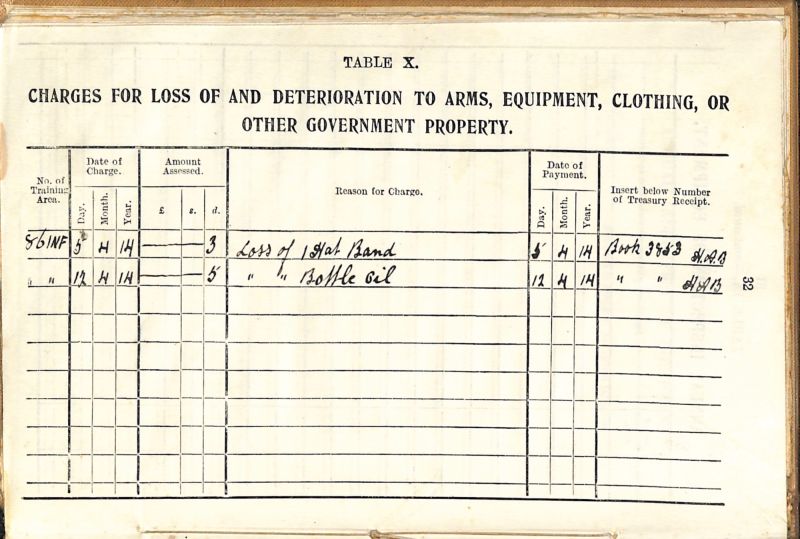 TABLE X.
CHARGES FOR LOSS OF AND DETERIORATION TO ARMS, EQUIPMENT, CLOTHING, OR
OTHER GOVERNMENT PROPERTY.
No. of Training Area.
Date of Charge.
Day. Month. Year.
Amount Assessed.
£ s. d.
Reason for Charge.
Date of Payment.
Day. Month. Year.
Insert below Number of Treasury Receipt.
86 INF 5 4 14 — 3 Loss of 1 Hat Band 5 4 14 Book 3853 H.A.B
" " 12 4 14 — 5 " " Bottle Oil 12 4 14 " " H A B
32